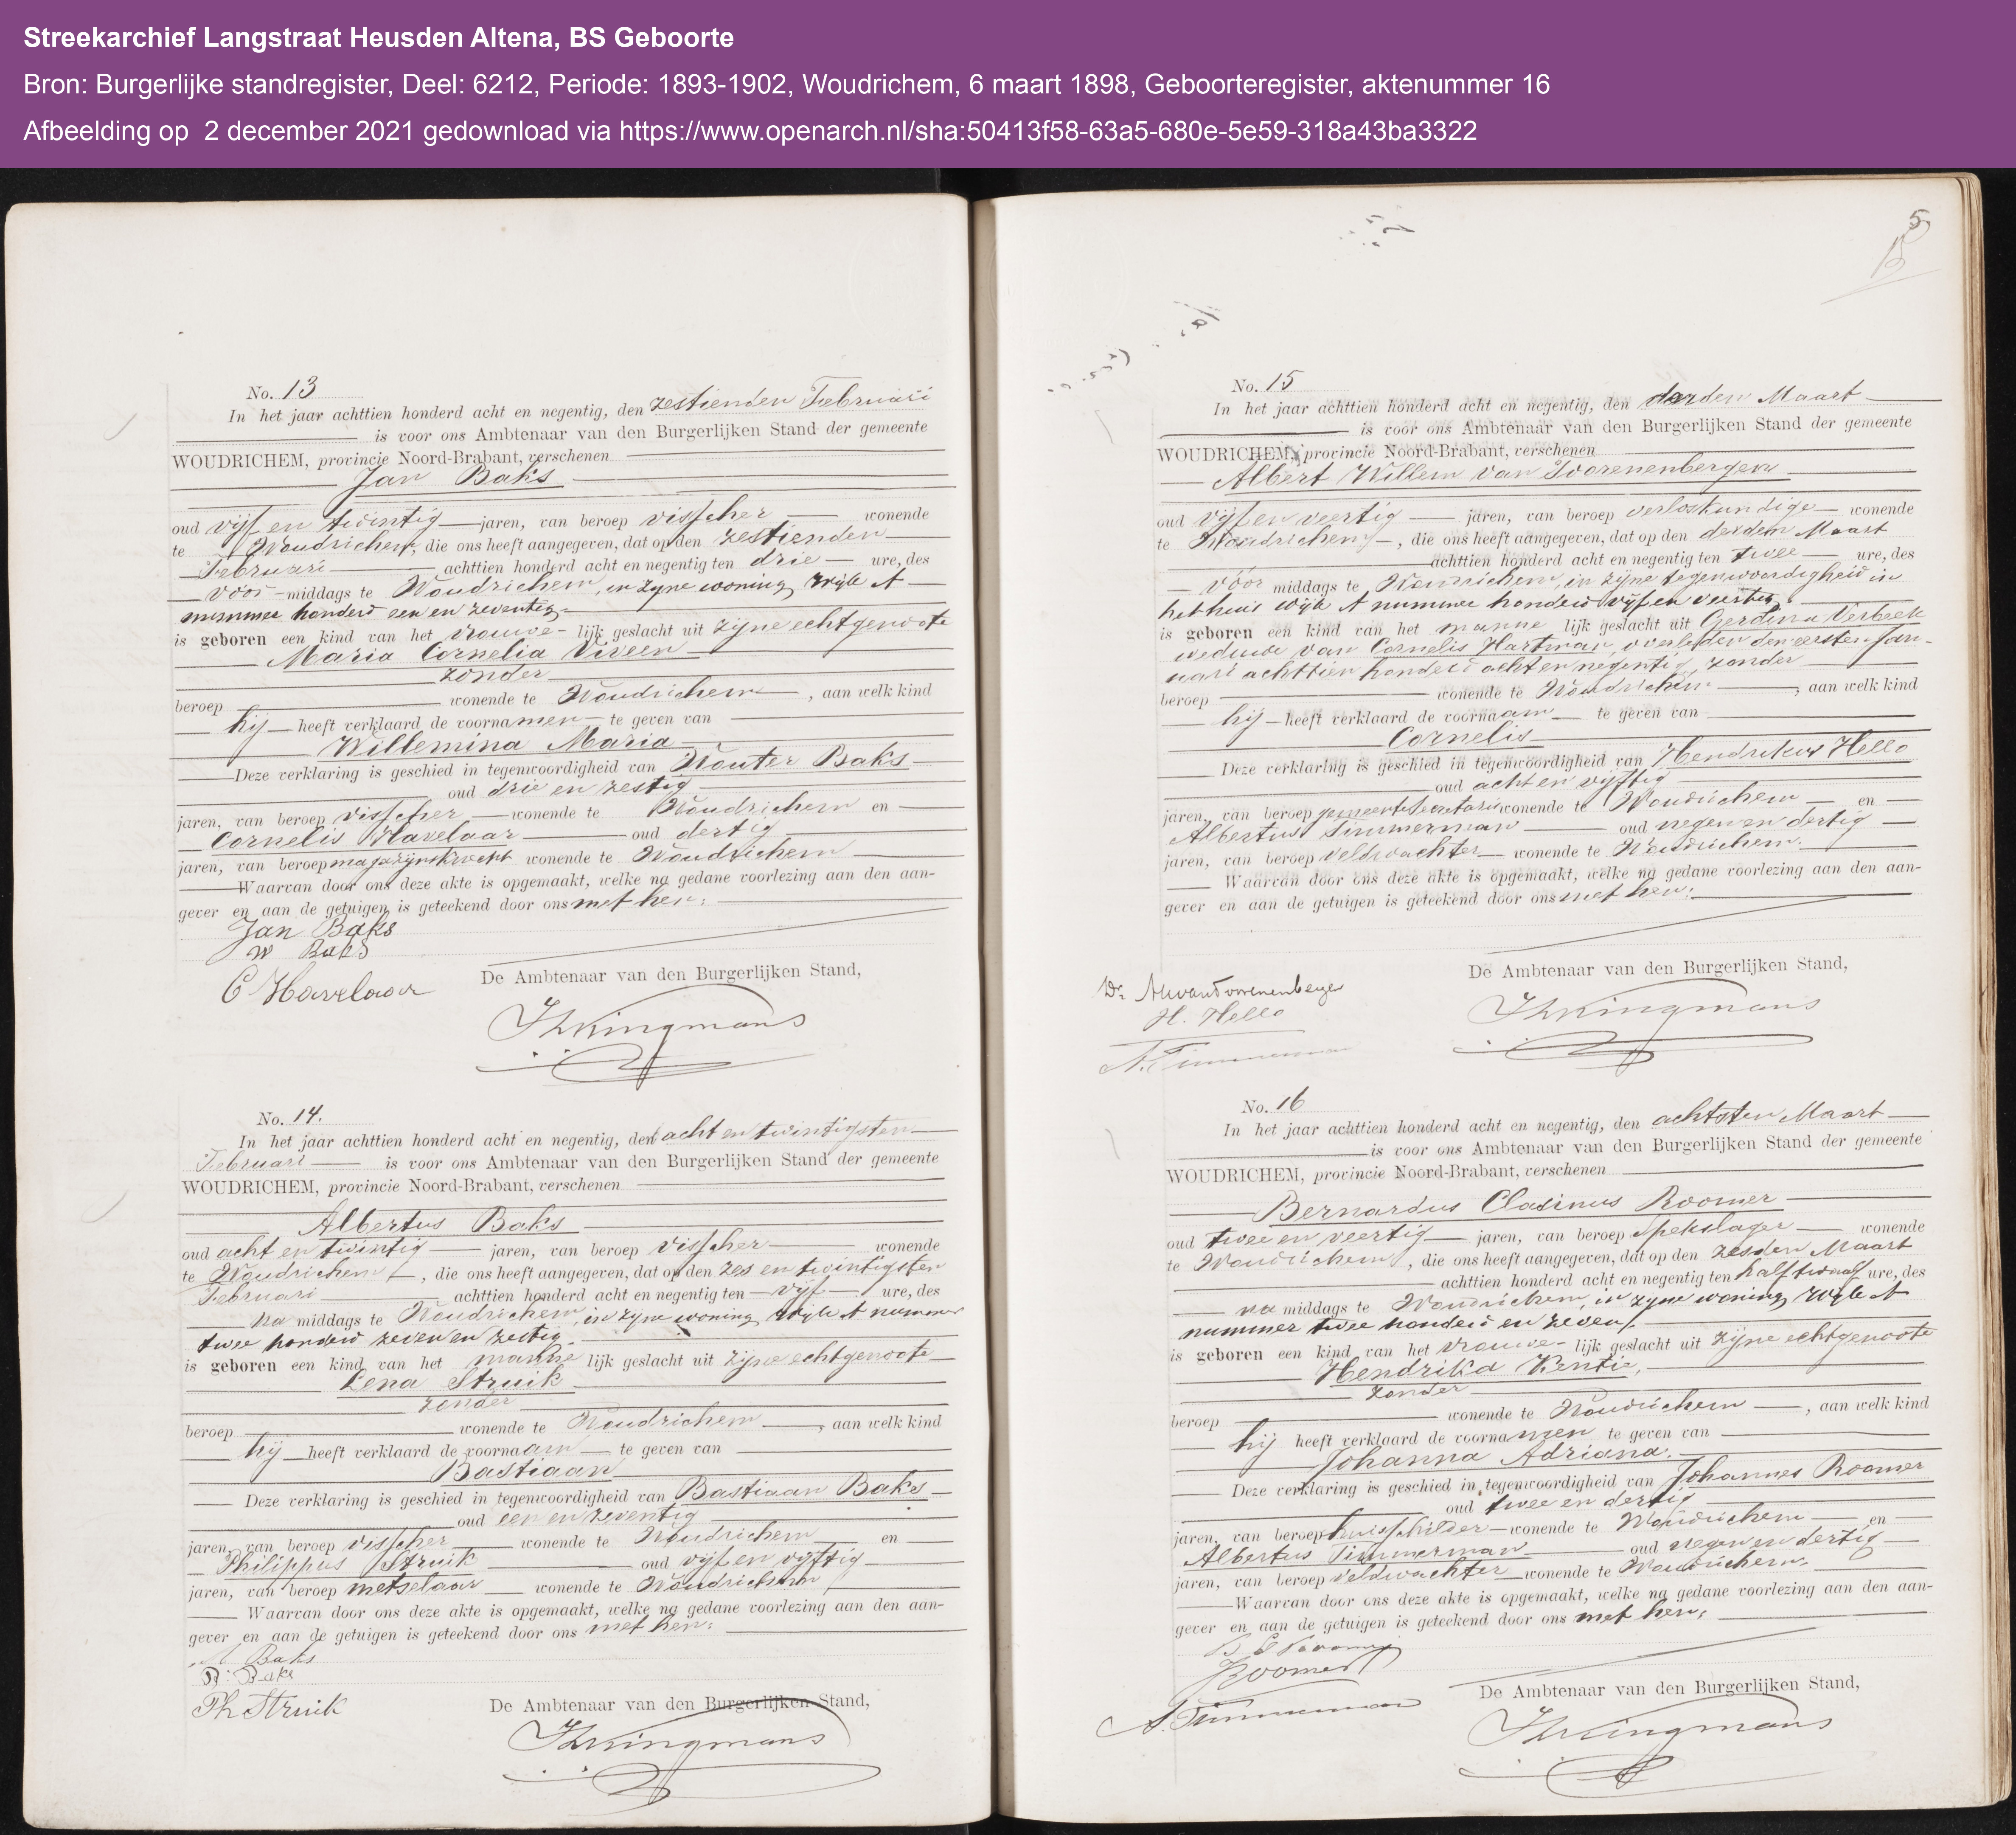 Streekarchief Langstraat Heusden Altena, BS Geboorte
Bron: Burgerlijke standregister, Deel: 6212, Periode: 1893-1902, Woudrichem, 6 maart 1898, Geboorteregister, aktenummer 16
Afbeelding op 2 december 2021 gedownload via https://www.openarch.nl/sha:50413f58-63a5-680e-5e59-318a43ba3322
No. 13
In het jaar achttien honderd acht en negentig, den zestienden Februari
is voor ons Ambtenaar van den Burgerlijken Stand der gemeente
WOUDRICHEM, provincie Noord-Brabant, verschenen
Jan Baks
oud vijf en twintig jaren, van beroep visscher wonende
te Woudrichem, die ons heeft aangegeven, dat op den zestienden
Februari achttien honderd acht en negentig ten drie ure, des
voor-middags te Woudrichem, in zijne woning, wijk A
nummer honderd een en zeventig
is geboren een kind van het vrouwe-lijk geslacht uit zijne echtgenoote
Maria Cornelia Viveen
zonder
beroep wonende te Woudrichem, aan welk kind
hij heeft verklaard de voornamen te geven van
Willemina Maria
Deze verklaring is geschied in tegenwoordigheid van Wouter Baks
oud drie en zestig
jaren, van beroep visscher wonende te Woudrichem en
Cornelis Havelaar oud dertig
jaren, van beroep magazijnknecht wonende te Woudrichem
Waarvan door ons deze akte is opgemaakt, welke na gedane voorlezing aan den aan-
gever en aan de getuigen is geteekend door ons met hen.
Jan Baks
W Baks
C Havelaar
De Ambtenaar van den Burgerlijken Stand,
No. 14.
In het jaar achttien honderd acht en negentig, den acht en twintigsten
Februari is voor ons Ambtenaar van den Burgerlijken Stand der gemeente
WOUDRICHEM, provincie Noord-Brabant, verschenen
Albertus Baks
oud acht en twintig jaren, van beroep visscher wonende
te Woudrichem, die ons heeft aangegeven, dat op den zes en twintigsten
Februari achttien honderd acht en negentig ten vijf ure, des
na middags te Woudrichem, in zijne woning, wijk A nummer
twee honderd zeven en zestig
is geboren een kind van het manne lijk geslacht uit zijne echtgenoote
Lena Struik
zonder
beroep wonende te Woudrichem, aan welk kind
hij heeft verklaard de voornaam te geven van
Bastiaan
Deze verklaring is geschied in tegenwoordigheid van Bastiaan Baks
oud een en zeventig
jaren, van beroep visscher wonende te Woudrichem en
Philippus Struik oud vijf en vijftig
jaren, van beroep metselaar wonende te Woudrichem
Waarvan door ons deze akte is opgemaakt, welke na gedane voorlezing aan den aan-
gever en aan de getuigen is geteekend door ons met hen.
A Baks
B. Baks
Ph Struik
De Ambtenaar van den Burgerlijken Stand,
5
No. 15
In het jaar achttien honderd acht en negentig, den derden Maart
is voor ons Ambtenaar van den Burgerlijken Stand der gemeente
WOUDRICHEM, provincie Noord-Brabant, verschenen
Albert Willem van Toorenenbergen
oud vijf en veertig jaren, van beroep verloskundige wonende
te Woudrichem, die ons heeft aangegeven, dat op den derden Maart
achttien honderd acht en negentig ten twee ure, des
voor middags te Woudrichem, in zijne tegenwoordigheid in
het huis wijk A nummer honderd vijf en veertig
is geboren een kind van het manne lijk geslacht uit Gerdina Verbeek
weduwe van Cornelis Hartman, overleden den eersten Jan-
uari achttien honderd acht en negentig, zonder
beroep wonende te Woudrichem, aan welk kind
hij heeft verklaard de voornaam te geven van
Cornelis
Deze verklaring is geschied in tegenwoordigheid van Hendrikus Hello
oud acht en vijftig
jaren, van beroep gemeentesecretaris wonende te Woudrichem en
Albertus Timmerman oud negen en dertig
jaren, van beroep veldwachter wonende te Woudrichem.
Waarvan door ons deze akte is opgemaakt, welke na gedane voorlezing aan den aan-
gever en aan de getuigen is geteekend door ons met hen.
De Ambtenaar van den Burgerlijken Stand,
Dr. AWvanToorenenbergen
H. Hello
A. Timmerman
No. 16
In het jaar achttien honderd acht en negentig, den achtsten Maart
is voor ons Ambtenaar van den Burgerlijken Stand der gemeente
WOUDRICHEM, provincie Noord-Brabant, verschenen
Bernardus Clasinus Roomer
oud twee en veertig jaren, van beroep spekslager wonende
te Woudrichem, die ons heeft aangegeven, dat op den zesden Maart
achttien honderd acht en negentig ten half twaalf ure, des
na middags te Woudrichem, in zijne woning, wijk A
nummer twee honderd en zeven
is geboren een kind van het vrouwe-lijk geslacht uit zijne echtgenoote
Hendrika Kentie,
zonder
beroep wonende te Woudrichem, aan welk kind
hij heeft verklaard de voornamen te geven van
Johanna Adriana.
Deze verklaring is geschied in tegenwoordigheid van Johannes Roomer
oud twee en dertig
jaren, van beroep huisschilder wonende te Woudrichem en
Albertus Timmerman oud negen en dertig
jaren, van beroep veldwachter wonende te Woudrichem.
Waarvan door ons deze akte is opgemaakt, welke na gedane voorlezing aan den aan-
gever en aan de getuigen is geteekend door ons met hen.
B C Roomer
JRoomer
A. Timmerman
De Ambtenaar van den Burgerlijken Stand,